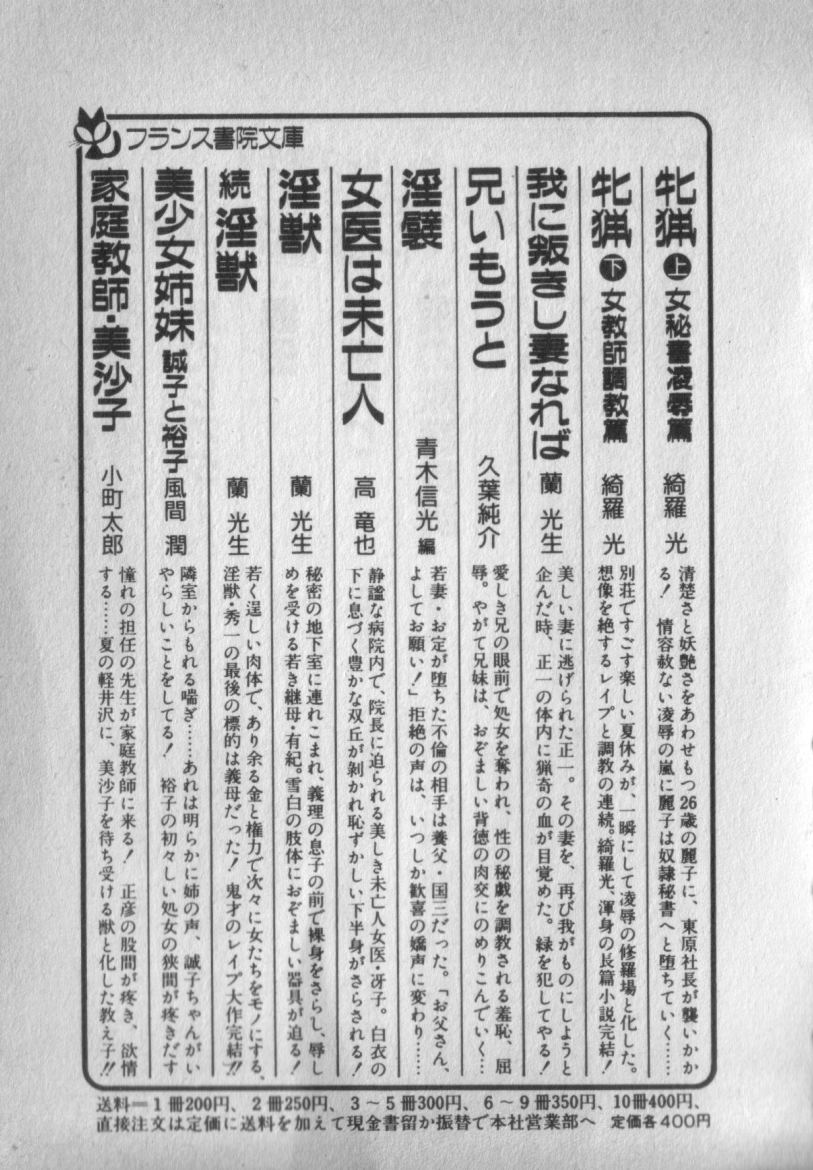 フランス書院文庫
牝猟 上 女秘書凌辱篇 綺羅 光
清楚さと妖艶さをあわせもつ26歳の麗子に、東原社長が襲いかか
る！ 情容赦ない凌辱の嵐に麗子は奴隷秘書へと堕ちていく……
牝猟 下 女教師調教篇 綺羅 光
別荘ですごす楽しい夏休みが、一瞬にして凌辱の修羅場と化した。
想像を絶するレイプと調教の連続。綺羅光、渾身の長篇小説完結！
我に叛きし妻なれば 蘭 光生
美しい妻に逃げられた正一。その妻を、再び我がものにしようと
企んだ時、正一の体内に猟奇の血が目覚めた。緑を犯してやる！
兄いもうと 久葉純介
愛しき兄の眼前で処女を奪われ、性の秘戯を調教される羞恥、屈
辱。やがて兄妹は、おぞましい背徳の肉交にのめりこんでいく…
淫襞 青木信光 編
若妻・お定が堕ちた不倫の相手は養父・国三だった。「お父さん、
よしてお願い！」拒絶の声は、いつしか歓喜の嬌声に変わり……
女医は未亡人 高 竜也
静謐な病院内で、院長に迫られる美しき未亡人女医・冴子。白衣の
下に息づく豊かな双丘が剝かれ恥ずかしい下半身がさらされる！
淫獣 蘭 光生
秘密の地下室に連れこまれ、義理の息子の前で裸身をさらし、辱し
めを受ける若き継母・有紀。雪白の肢体におぞましい器具が迫る！
続 淫獣 蘭 光生
若く逞しい肉体で、あり余る金と権力で次々に女たちをモノにする、
淫獣・秀一の最後の標的は義母だった！ 鬼才のレイプ大作完結!!
美少女姉妹 誠子と裕子 風間 潤
家庭教師・美沙子 小町太郎
送料＝1冊200円、2冊250円、3～5冊300円、6～9冊350円、10冊400円、
直接注文は定価に送料を加えて現金書留か振替で本社営業部へ 定価各400円